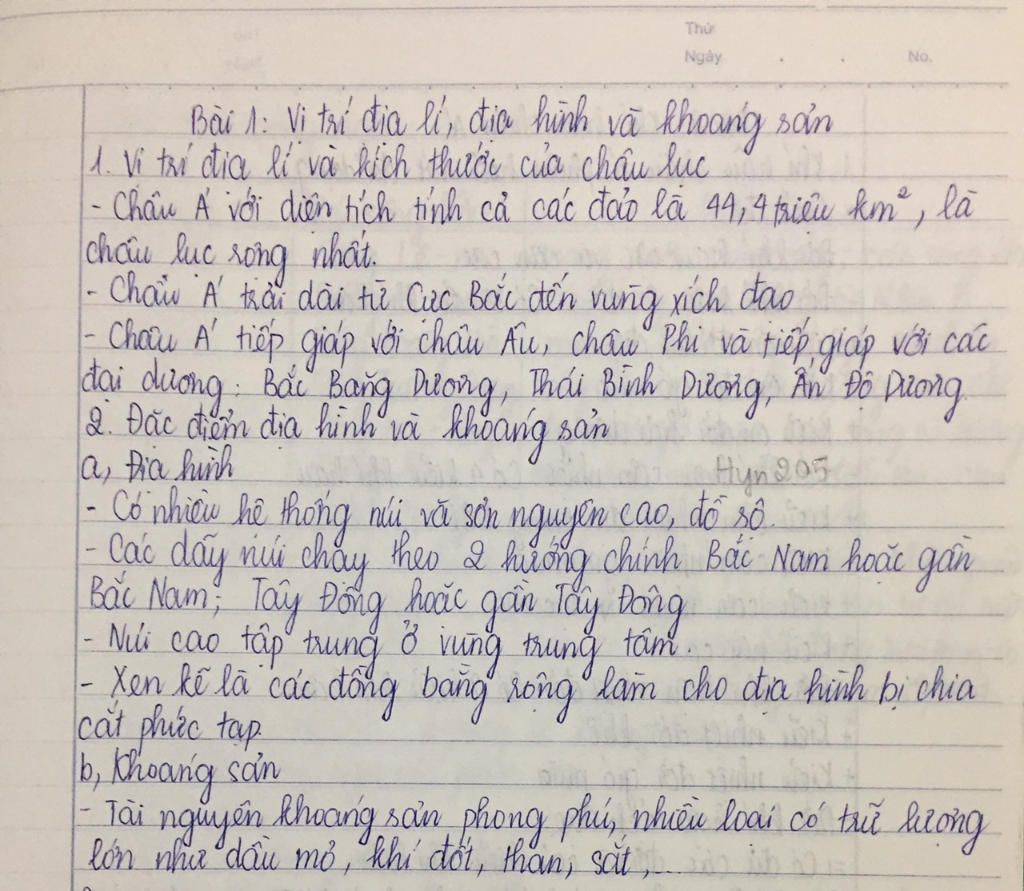 Thứ
Ngày
No.
Bài 1: Vị trí địa lí, địa hình và khoáng sản
1. Vị trí địa lí và kích thước của châu lục
- Châu Á với diện tích tính cả các đảo là 44,4 triệu km², là
châu lục rộng nhất.
- Châu Á trải dài từ Cực Bắc đến vùng xích đạo
- Châu Á tiếp giáp với châu Âu, châu Phi và tiếp giáp với các
đại dương: Bắc Băng Dương, Thái Bình Dương, Ấn Độ Dương.
2. Đặc điểm địa hình và khoáng sản
a, Địa hình
Hyn205
- Có nhiều hệ thống núi và sơn nguyên cao, đồ sộ.
- Các dãy núi chạy theo 2 hướng chính Bắc Nam hoặc gần
Bắc Nam; Tây Đông hoặc gần Tây Đông
- Núi cao tập trung ở vùng trung tâm.
- Xen kẽ là các đồng bằng rộng làm cho địa hình bị chia
cắt phức tạp.
b, Khoáng sản
- Tài nguyên khoáng sản phong phú, nhiều loại có trữ lượng
lớn như dầu mỏ, khí đốt, than, sắt,...